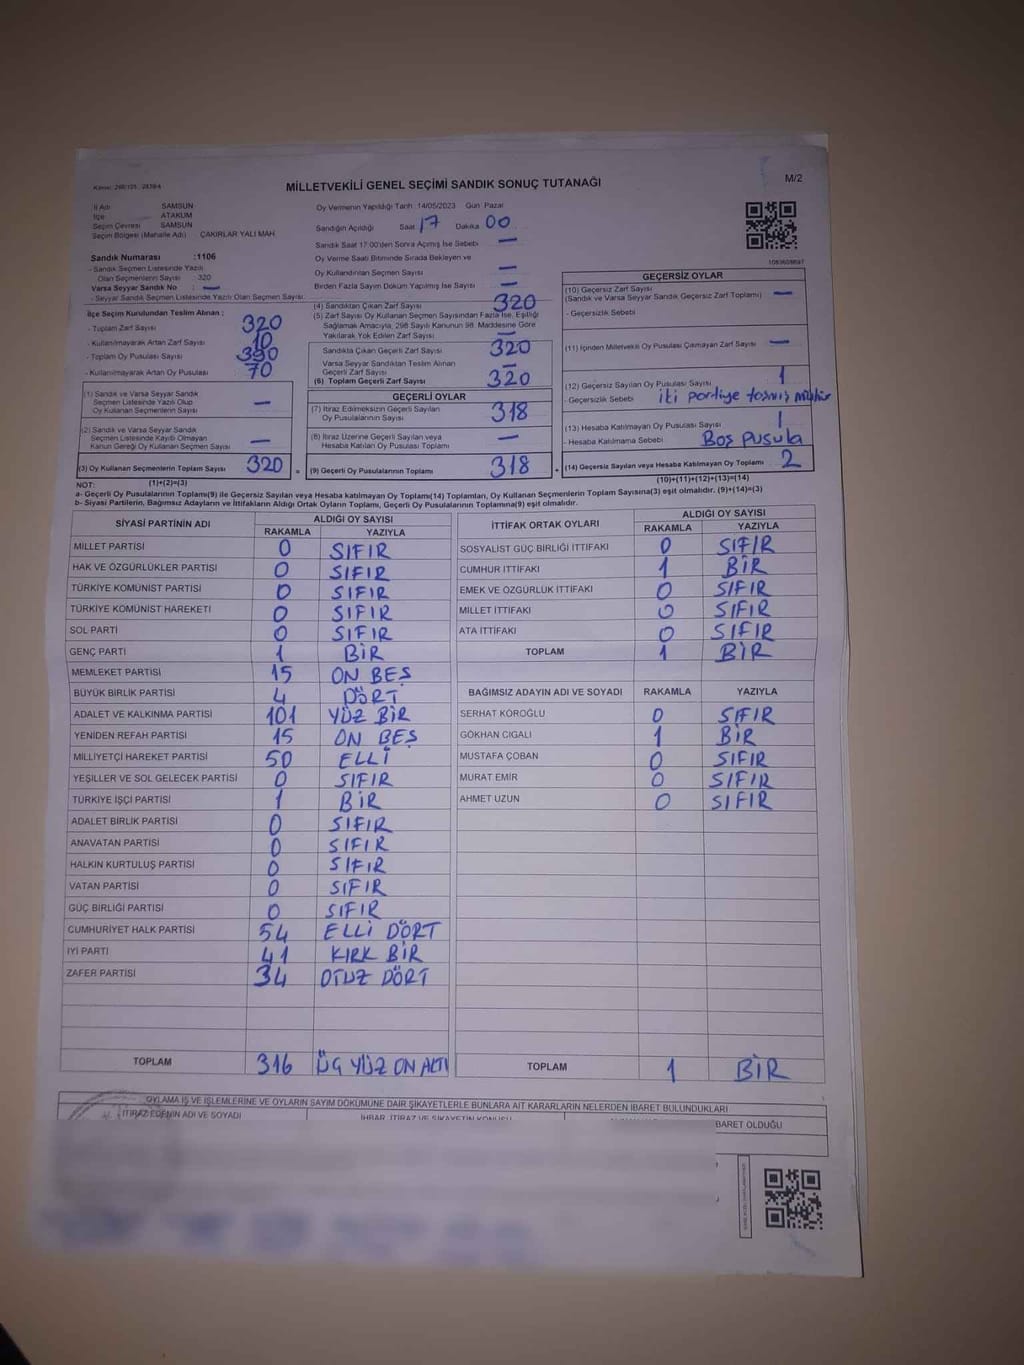 MİLLETVEKİLİ GENEL SEÇİMİ SANDIK SONUÇ TUTANAĞI
M/2
İl Adı SAMSUN
İlçe ATAKUM
Seçim Çevresi SAMSUN
Seçim Bölgesi (Mahalle Adı) ÇAKIRLAR YALI MAH
Oy Vermenin Yapıldığı Tarih :14/05/2023 Gün Pazar
Sandığın Açıldığı Saat 17 Dakika 00
Sandık Saat 17:00'den Sonra Açılmış İse Sebebi —
Oy Verme Saati Bitiminde Sırada Bekleyen ve
Oy Kullandırılan Seçmen Sayısı —
Birden Fazla Sayım Döküm Yapılmış İse Sayısı —
Sandık Numarası :1106
- Sandık Seçmen Listesinde Yazılı
Olan Seçmenlerin Sayısı : 320
Varsa Seyyar Sandık No : —
- Seyyar Sandık Seçmen Listesinde Yazılı Olan Seçmen Sayısı:
İlçe Seçim Kurulundan Teslim Alınan :
- Toplam Zarf Sayısı 320
- Kullanılmayarak Artan Zarf Sayısı 10
- Toplam Oy Pusulası Sayısı 390
- Kullanılmayarak Artan Oy Pusulası 70
(1) Sandık ve Varsa Seyyar Sandık
Seçmen Listesinde Yazılı Olup
Oy Kullanan Seçmenlerin Sayısı —
(2) Sandık ve Varsa Seyyar Sandık
Seçmen Listesinde Kayıtlı Olmayan
Kanun Gereği Oy Kullanan Seçmen Sayısı —
(3) Oy Kullanan Seçmenlerin Toplam Sayısı 320
(1)+(2)=(3)
(4) Sandıktan Çıkan Zarf Sayısı 320
(5) Zarf Sayısı Oy Kullanan Seçmen Sayısından Fazla İse, Eşitliği
Sağlamak Amacıyla, 298 Sayılı Kanunun 98. Maddesine Göre
Yakılarak Yok Edilen Zarf Sayısı —
Sandıkta Çıkan Geçerli Zarf Sayısı 320
Varsa Seyyar Sandıktan Teslim Alınan
Geçerli Zarf Sayısı —
(6) Toplam Geçerli Zarf Sayısı 320
GEÇERLİ OYLAR
(7) İtiraz Edilmeksizin Geçerli Sayılan
Oy Pusulalarının Sayısı 318
(8) İtiraz Üzerine Geçerli Sayılan veya
Hesaba Katılan Oy Pusulası Toplamı —
(9) Geçerli Oy Pusulalarının Toplamı 318
GEÇERSİZ OYLAR
(10) Geçersiz Zarf Sayısı
(Sandık ve Varsa Seyyar Sandık Geçersiz Zarf Toplamı) —
- Geçersizlik Sebebi
(11) İçinden Milletvekili Oy Pusulası Çıkmayan Zarf Sayısı —
(12) Geçersiz Sayılan Oy Pusulası Sayısı 1
- Geçersizlik Sebebi iki partiye
(13) Hesaba Katılmayan Oy Pusulası Sayısı 1
- Hesaba Katılmama Sebebi Boş Pusula
(14) Geçersiz Sayılan veya Hesaba Katılmayan Oy Toplamı 2
(10)+(11)+(12)+(13)=(14)
NOT:
a- Geçerli Oy Pusulalarının Toplamı(9) ile Geçersiz Sayılan veya Hesaba katılmayan Oy Toplamı(14) Toplamları, Oy Kullanan Seçmenlerin Toplam Sayısına(3) eşit olmalıdır. (9)+(14)=(3)
b- Siyasi Partilerin, Bağımsız Adayların ve İttifakların Aldığı Ortak Oyların Toplamı, Geçerli Oy Pusulalarının Toplamına(9) eşit olmalıdır.
SİYASİ PARTİNİN ADI ALDIĞI OY SAYISI
RAKAMLA YAZIYLA
MİLLET PARTİSİ 0 SIFIR
HAK VE ÖZGÜRLÜKLER PARTİSİ 0 SIFIR
TÜRKİYE KOMÜNİST PARTİSİ 0 SIFIR
TÜRKİYE KOMÜNİST HAREKETİ 0 SIFIR
SOL PARTİ 0 SIFIR
GENÇ PARTİ 1 BİR
MEMLEKET PARTİSİ 15 ON BEŞ
BÜYÜK BİRLİK PARTİSİ 4 DÖRT
ADALET VE KALKINMA PARTİSİ 101 YÜZ BİR
YENİDEN REFAH PARTİSİ 15 ON BEŞ
MİLLİYETÇİ HAREKET PARTİSİ 50 ELLİ
YEŞİLLER VE SOL GELECEK PARTİSİ 0 SIFIR
TÜRKİYE İŞÇİ PARTİSİ 1 BİR
ADALET BİRLİK PARTİSİ 0 SIFIR
ANAVATAN PARTİSİ 0 SIFIR
HALKIN KURTULUŞ PARTİSİ 0 SIFIR
VATAN PARTİSİ 0 SIFIR
GÜÇ BİRLİĞİ PARTİSİ 0 SIFIR
CUMHURİYET HALK PARTİSİ 54 ELLİ DÖRT
İYİ PARTİ 41 KIRK BİR
ZAFER PARTİSİ 34 OTUZ DÖRT
TOPLAM 316 ÜÇ YÜZ ON ALTI
İTTİFAK ORTAK OYLARI ALDIĞI OY SAYISI
RAKAMLA YAZIYLA
SOSYALİST GÜÇ BİRLİĞİ İTTİFAKI 0 SIFIR
CUMHUR İTTİFAKI 1 BİR
EMEK VE ÖZGÜRLÜK İTTİFAKI 0 SIFIR
MİLLET İTTİFAKI 0 SIFIR
ATA İTTİFAKI 0 SIFIR
TOPLAM 1 BİR
BAĞIMSIZ ADAYIN ADI VE SOYADI RAKAMLA YAZIYLA
SERHAT KÖROĞLU 0 SIFIR
GÖKHAN CIGALI 1 BİR
MUSTAFA ÇOBAN 0 SIFIR
MURAT EMİR 0 SIFIR
AHMET UZUN 0 SIFIR
TOPLAM 1 BİR
OYLAMA İŞ VE İŞLEMLERİNE VE OYLARIN SAYIM DÖKÜMÜNE DAİR ŞİKAYETLERLE BUNLARA AİT KARARLARIN NELERDEN İBARET BULUNDUKLARI
İTİRAZ EDENİN ADI VE SOYADI
İHBAR, İTİRAZ VE ŞİKAYETİN KONUSU
İBARET OLDUĞU